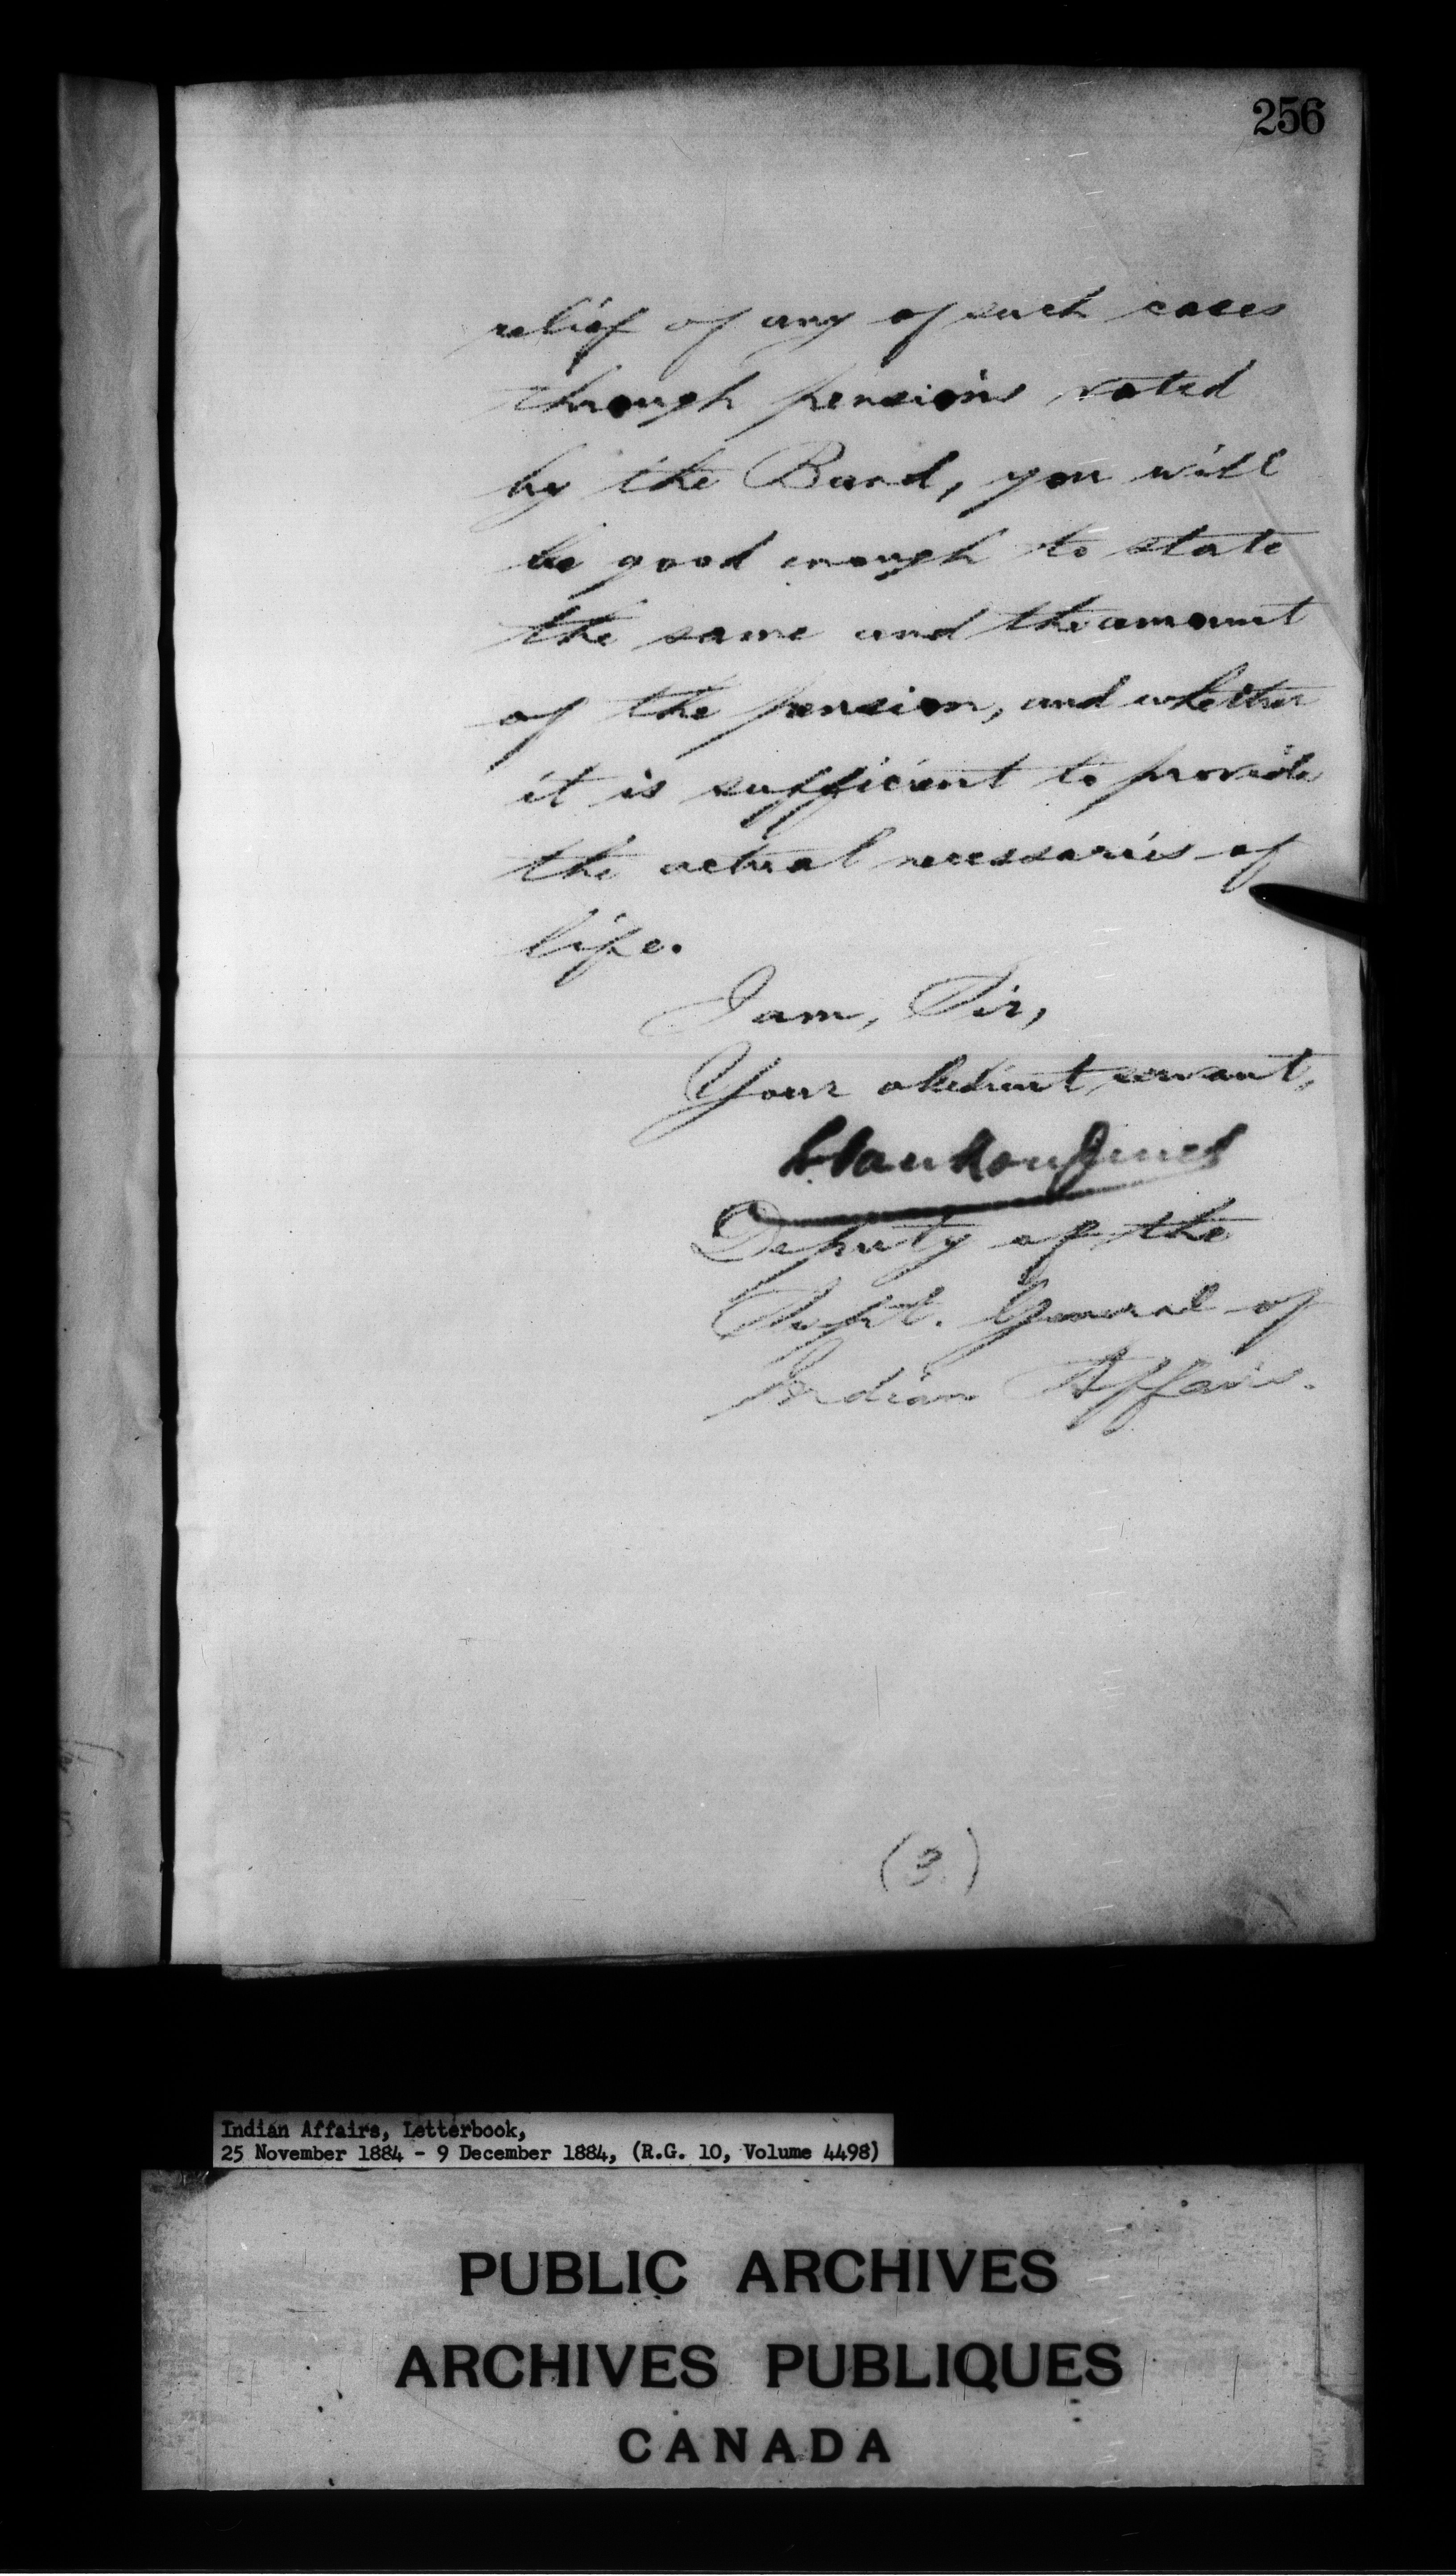 256
relief of any of such cases
through pensions voted
by the Band, you will
be good enough to state
the same and the amount
of the pension, and whether
it is sufficient to provide
the actual necessaries of
life.
I am, Sir,
Your obedient servant,
L. Vankoughnet
Deputy of the
Supt. General of
Indian Affairs.
(3.)
Indian Affairs, Letterbook,
25 November 1884 - 9 December 1884, (R.G. 10, Volume 4498)
PUBLIC ARCHIVES
ARCHIVES PUBLIQUES
CANADA